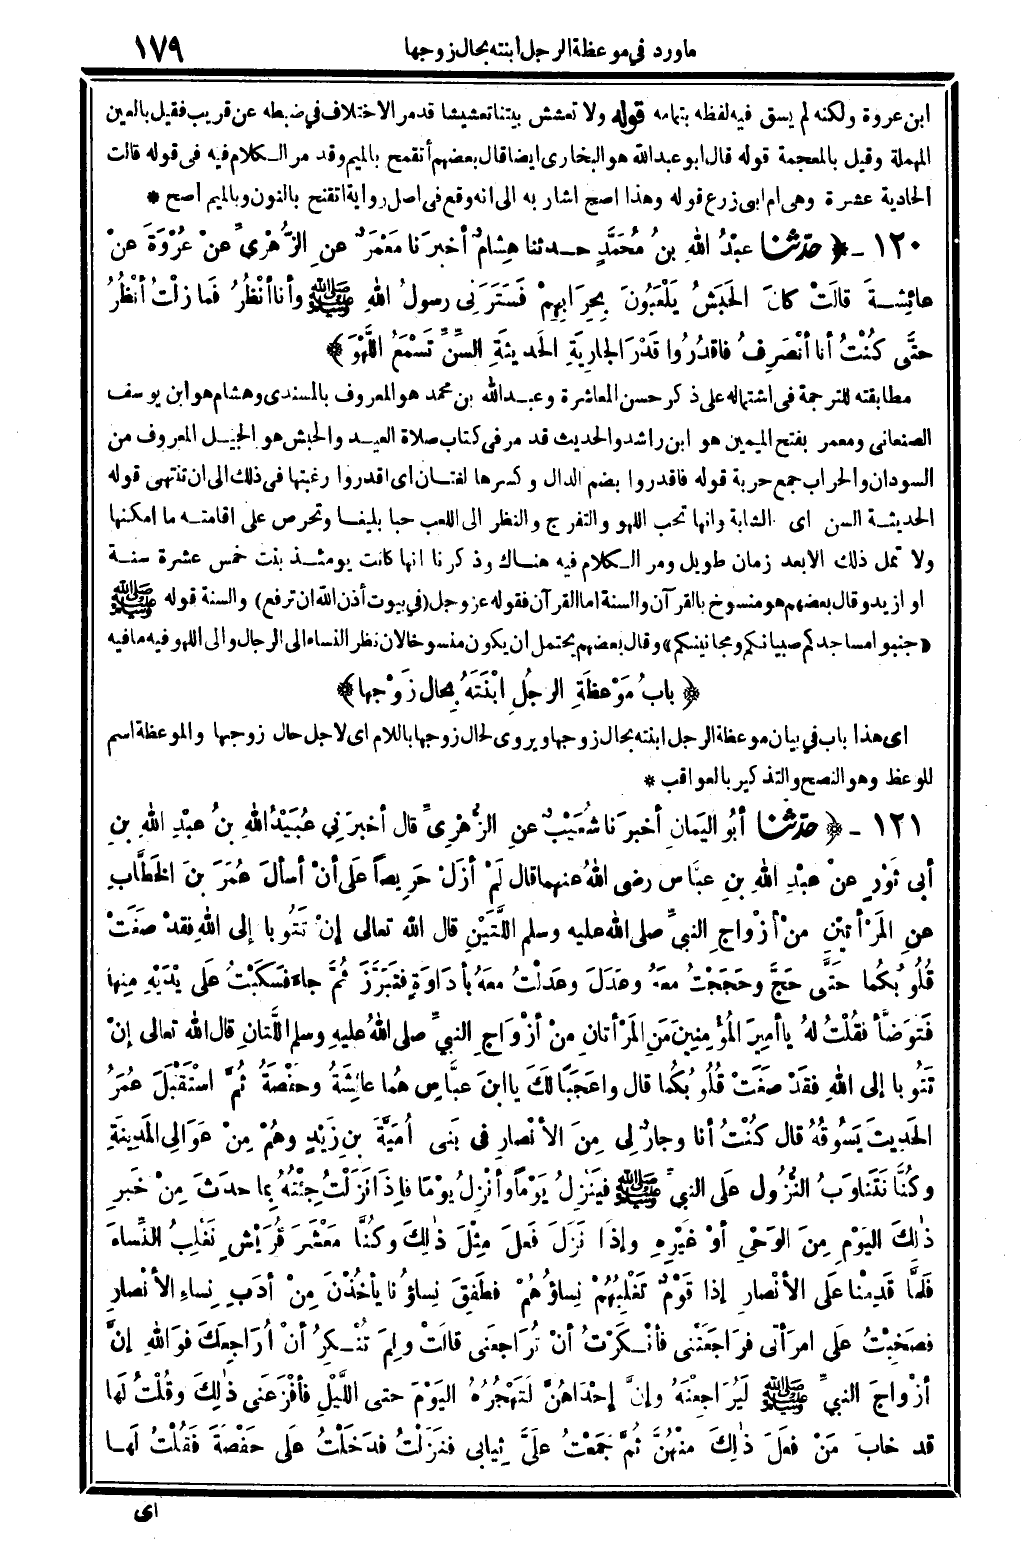 ماورد في موعظة الرجل ابنته بحال زوجها ١٧٩
ابن عروة ولكنه لم يسق فيه لفظه بتمامه قوله ولا تعشش بيتنا تعشيشا قد مر الاختلاف في ضبطه عن قريب فقيل بالعين
المهملة وقيل بالمعجمة قوله قال ابو عبد الله هو البخاري ايضا قال بعضهم أتقمح بالميم وقد مر الكلام فيه فى قوله قالت
الحادية عشرة وهى ام ابى زرع قوله وهذا اصح اشار به الى انه وقع فى اصل رواية اتقنح بالنون وبالميم أصح *
١٢٠ - ﴿ حَدَّثَنَا عبْدُ اللهِ بنُ مُحَمَّدٍ حدثنا هِشامٌ أخبرَنا مَعْمَرٌ عنِ الزُّهْرِىِّ عنْ عُرْوَةَ عنْ
عائِشةَ قالَتْ كانَ الحَبَشُ يَلْعَبُونَ بِحِرَابِهِمْ فَسَتَرَنِى رسولُ اللهِ ﷺ وأنا أنْظُرُ فَمازِلْتُ أنْظُرُ
حتَّى كُنْتُ أنا أنْصَرِفُ فاقْدُرُوا قَدْرَ الجارِيَةِ الحَدِيثَةِ السِّنِّ تَسْمَعُ اللَّهْوَ ﴾
مطابقته للترجمة فى اشتماله على ذكر حسن المعاشرة وعبد الله بن محمد هو المعروف بالمسندى وهشام هو ابن يوسف
الصنعانى ومعمر بفتح الميمين هو ابن راشد والحديث قد مر فى كتاب صلاة العيد والحبش هو الجيل المعروف من
السودان والحراب جمع حربة قوله فاقدروا بضم الدال وكسرها لغتان اى اقدروا رغبتها فى ذلك الى ان تنتهى قوله
الحديثة السن اى الشابة وانها تحب اللهو والتفرج والنظر الى اللعب حبا بليغا وتحرص على اقامته ما امكنها
ولا تمل ذلك الا بعد زمان طويل ومر الكلام فيه هناك وذكرنا انها كانت يومئذ بنت خمس عشرة سنة
او ازيد وقال بعضهم هو منسوخ بالقرآن والسنة اما القرآن فقوله عز وجل (في بيوت أذن الله ان ترفع) والسنة قوله ﷺ
«جنبوا مساجدكم صبيانكم ومجانينكم» وقال بعضهم يحتمل ان يكون منسوخا لان نظر النساء الى الرجال والى اللهو فيه مافيه
﴿ بابُ مَوْعِظَةِ الرجُلِ ابْنَتَهُ بِحالِ زَوْجِها ﴾
اى هذا باب في بيان موعظة الرجل ابنته بحال زوجها ويروى لحال زوجها باللام اى لاجل حال زوجها والموعظة اسم
للوعظ وهو النصح والتذكير بالعواقب *
١٢١ - ﴿ حَدَّثَنَا أبُو اليَمانِ أخبرَنا شُعَيْبٌ عنِ الزُّهْرِىِّ قال أخبرَنِي عُبَيْدُ اللهِ بنُ عبْدِ اللهِ بنِ
أبى ثَوْرٍ عنْ عبْدِ اللهِ بنِ عبَّاسٍ رضى اللهُ عنهما قال لَمْ أزَلْ حَرِيصاً عَلى أنْ أسألَ عُمَرَ بنَ الخَطَّابِ
عنِ المَرْأتَيْنِ منْ أزْواجِ النبيِّ صلى الله عليه وسلم اللَّتَيْنِ قال الله تعالى إنْ تَتُوبا إلى اللهِ فقد صغَتْ
قُلُوبُكُما حَتَّى حَجَّ وحَجَجْتُ معَهُ وعَدَلَ وعَدَلْتُ معَهُ بأدَاوَةٍ فتَبَرَّزَ ثُمَّ جاءَ فسَكَبْتُ عَلى يدَيْهِ مِنها
فتَوضَّأ فقُلْتُ لهُ يا أمِيرَ المُؤمِنِينَ مَنِ المَرْأتانِ منْ أزْواجِ النبيِّ صلى اللهُ عليهِ وسلم اللَّتانِ قال الله تعالى إنْ
تَتُوبا إلى اللهِ فقَدْ صغَتْ قُلُوبُكُما قال واعَجَبًا لكَ يا ابنَ عبَّاسٍ هُما عائِشَةُ وحفْصَةُ ثُمَّ اسْتَقْبَلَ عُمَرُ
الحَدِيثَ يَسُوقُهُ قال كُنْتُ أنا وجارٌ لِى مِنَ الأنْصارِ فى بَنى أُمَيَّةَ بنِ زَيْدٍ وهُمْ مِنْ عَوَالِى المَدِينَةِ
وكُنَّا نَتَناوَبُ النُّزُولَ عَلى النبيِّ ﷺ فيَنْزِلُ يَوْماً وأنْزِلُ يَوْمًا فإذَا نَزَلْتُ جِئْتُهُ بِما حدَثَ مِنْ خَبَرِ
ذلِكَ اليَوْمِ مِنَ الوَحْىِ أوْ غَيْرِهِ وإذَا نَزَلَ فَعلَ مِثْلَ ذلِكَ وكُنَّا مَعْشَرَ قُرَيْشٍ نَغْلِبُ النِّساءَ
فلَمَّا قَدِمْنا عَلَى الأنْصارِ إذا قَوْمٌ تَغْلِبُهُمْ نِساؤُهُمْ فطَفِقَ نِساؤُنا يأخُذْنَ مِنْ أدَبِ نِساءِ الأنْصارِ
فصَخِبْتُ عَلَى امرَأتِى فرَاجَعَتْنى فأنْكَرْتُ أنْ تُرَاجِعَنى قالَتْ ولِمَ تُنْكِرُ أنْ أُرَاجِعَكَ فوَاللهِ إنَّ
أزْواجَ النبيِّ ﷺ لَيُرَاجِعْنَهُ وإنَّ إحْدَاهُنَّ لَتَهْجُرُهُ اليَوْمَ حتى اللَّيْلِ فأفْزَعَنى ذلِكَ وقُلْتُ لَها
قد خابَ مَنْ فعَلَ ذلِكَ مِنْهُنَّ ثُمَّ جَمَعْتُ عَلَىَّ ثِيابى فنَزَلْتُ فدَخَلْتُ على حَفْصَةَ فقُلْتُ لَها
اى